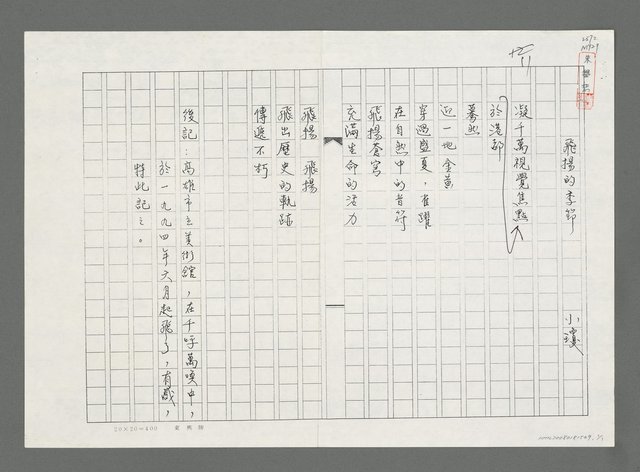 飛揚的季節
小瓊
凝千萬視覺焦點
於港都
驀然
迎一地金黃
穿過盛夏，雀躍
在自然中的音符
飛揚蒼穹
充滿生命的活力
飛揚　飛揚
飛出歷史的軌跡
傳遞不朽
後記：高雄市立美術館，在千呼萬喚中，
於一九九四年六月起飛了，有感，
特此記之。
20×20=400